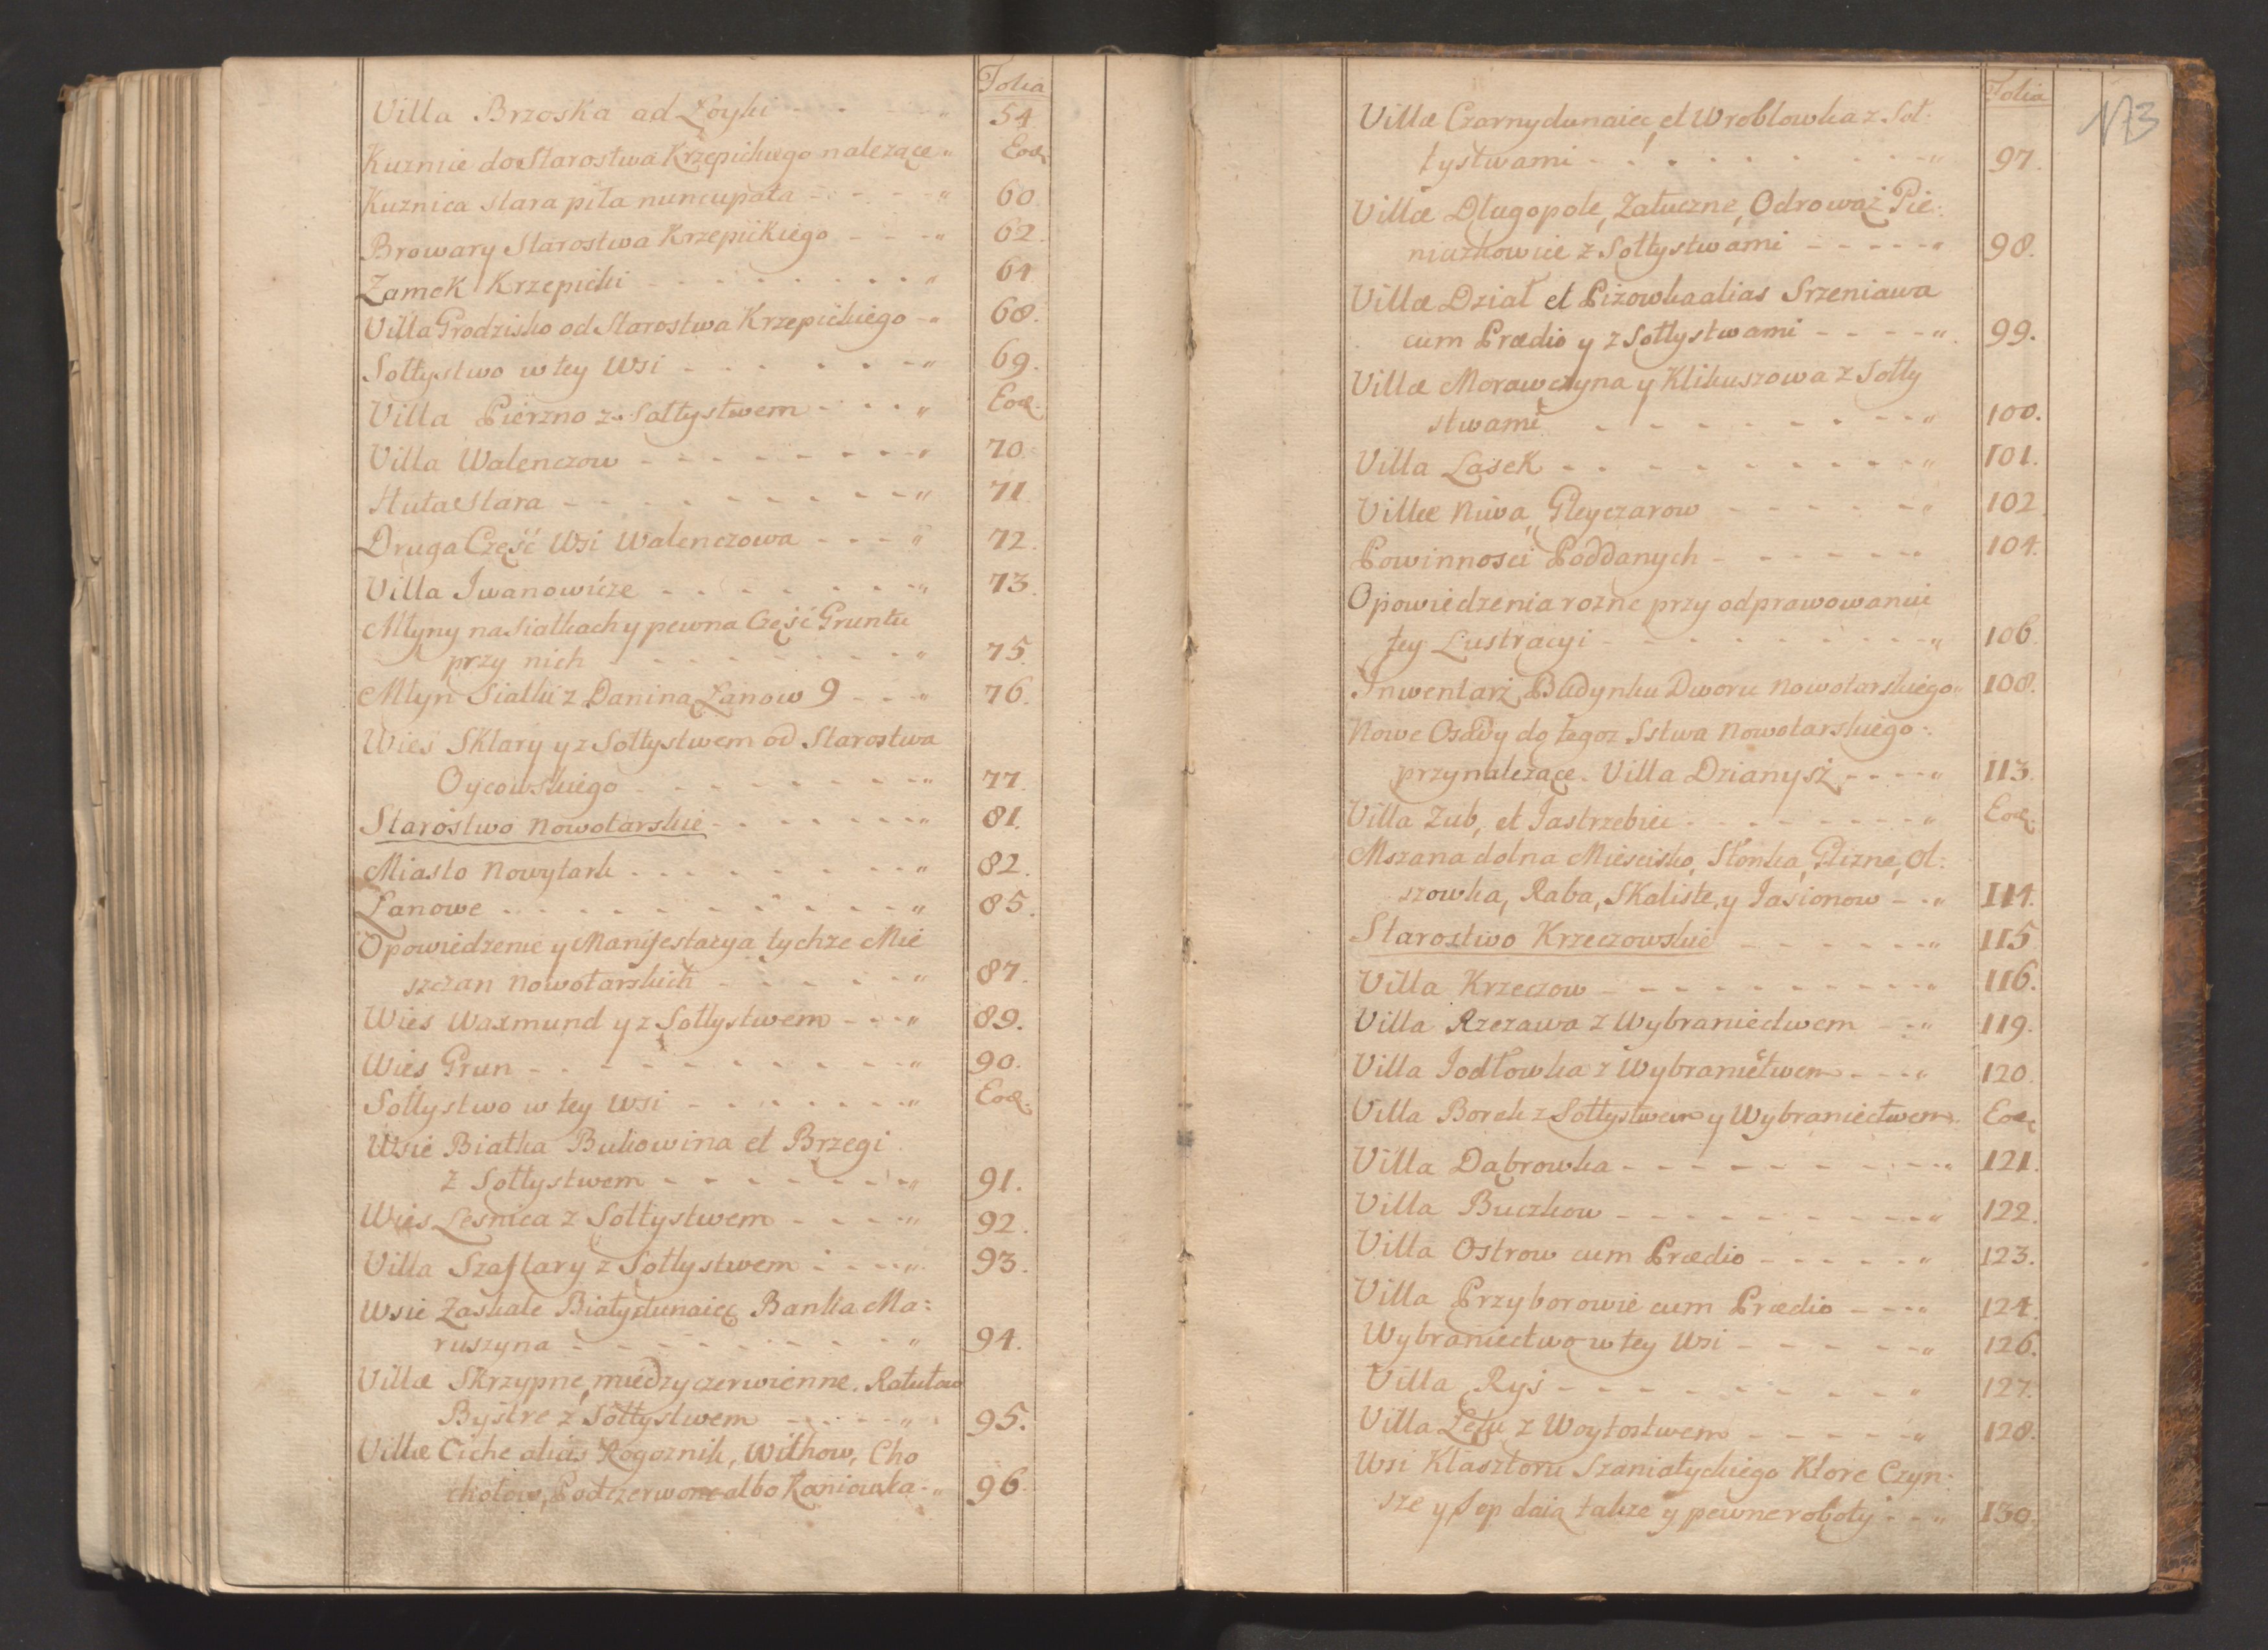 Folia
Villa Brzoska ad Łoyki - - - " 54
Kuznie do Starostwa Krzepickiego należące " Eod.
Kuznica stara piła nuncupata - - - - " 60
Browary Starostwa Krzepickiego - - - " 62.
Zamek Krzepicki - - - - - - - " 64
Villa Grodzisko od Starostwa Krzepickiego - " 68.
Sołtystwo w tey Wsi - - - - - - " 69.
Villa Pierzno z Sołtystwem - - - " Eod.
Villa Walenczow - - - - - - - - " 70.
Huta Stara - - - - - - - - - " 71.
Druga Część Wsi Walenczowa - - - " 72.
Villa Iwanowicze - - - - - - - " 73.
Młyny na Siatkach y pewna Część Gruntu
przy nich - - - - - - - - " 75.
Młyn Siatki z Danina Łanow 9 - - " 76.
Wieś Sklary y z Sołtystwem od Starostwa
Oycowskiego - - - - - - - " 77.
Starostwo Nowotarskie - - - - - - " 81.
Miasto Nowytark - - - - - - - - " 82.
Łanowe - - - - - - - - - - - " 85.
Opowiedzenie y Manifestacya tychże Mie
szczan Nowotarskich - - - - - " 87.
Wies Waxmund y z Sołtystwem - - - " 89.
Wies Grun - - - - - - - - - " 90.
Sołtystwo w tey Wsi - - - - - - " Eod.
Wsie Białka Bukowina et Brzegi
z Sołtystwem - - - - - - - " 91.
Wieś Lesnica z Sołtystwem - - - - " 92.
Villa Szaflary z Sołtystwem - - - - " 93.
Wsie Zaskale Białydunaiec Banka Ma:
ruszyna - - - - - - - - - " 94.
Villæ Skrzypne, międzyczerwienne. Ratułow
Bystre z Sołtystwem - - - - - " 95.
Villæ Ciche alias Rogoznik, Witkow, Cho
chołow, Podczerwone albo Kaniowka - " 96.
Folia
173
Villæ Czarnydunaiec, et Wroblowka z Soł:
tystwami - - - - - - - - " 97.
Villæ Długopole, Załuczne, Odrowąż Pie:
niazkowice z Sołtystwami - - - - - " 98.
Villæ Dział et Pizowka alias Srzeniawa
cum Prædio y z Sołtystwami - - - - " 99.
Villæ Morawczyna y Klikuszowa z Sołty
stwami - - - - - - - - " 100.
Villa Lasek - - - - - - - - - " 101.
Villæ Niwa, Gleyczarow - - - - - " 102
Powinnosci Poddanych - - - - - - " 104.
Opowiedzenia rozne przy odprawowaniu
tey Lustracyi - - - - - - - - " 106
Inwentarz Budynku Dworu Nowotarskiego " 108.
Nowe Osady do tegoz Sstwa Nowotarskiego:
przynalezące. Villa Dzianysz - - - - " 113.
Villa Zub, et Iastrzebiec - - - - - - - " Eod.
Mszana dolna Miescisko, Słonka, Glizne, Ol:
szowka, Raba, Skaliste, y Iasionow - - " 114.
Starostwo Krzeczowskie - - - - - - " 115
Villa Krzeczow - - - - - - - - - " 116.
Villa Rzezawa z Wybraniectwem - - " 119.
Villa Iodłowka z Wybraniectwem - - - " 120.
Villa Borek z Sołtystwem y Wybraniectwem. Eod.
Villa Dąbrowka - - - - - - - - - " 121.
Villa Buczkow - - - - - - - - - " 122.
Villa Ostrow cum Prædio - - - - - " 123.
Villa Przyborowie cum Prædio - - - " 124.
Wybraniectwo w tey Wsi - - - - - " 126.
Villa Ryś - - - - - - - - " 127.
Villa Łętu z Woytostwem - - - - - " 128.
Wsi Klasztoru Szaniatyckiego Ktore Czyn:
sze y Sep daią także y pewne roboty - - " 130.